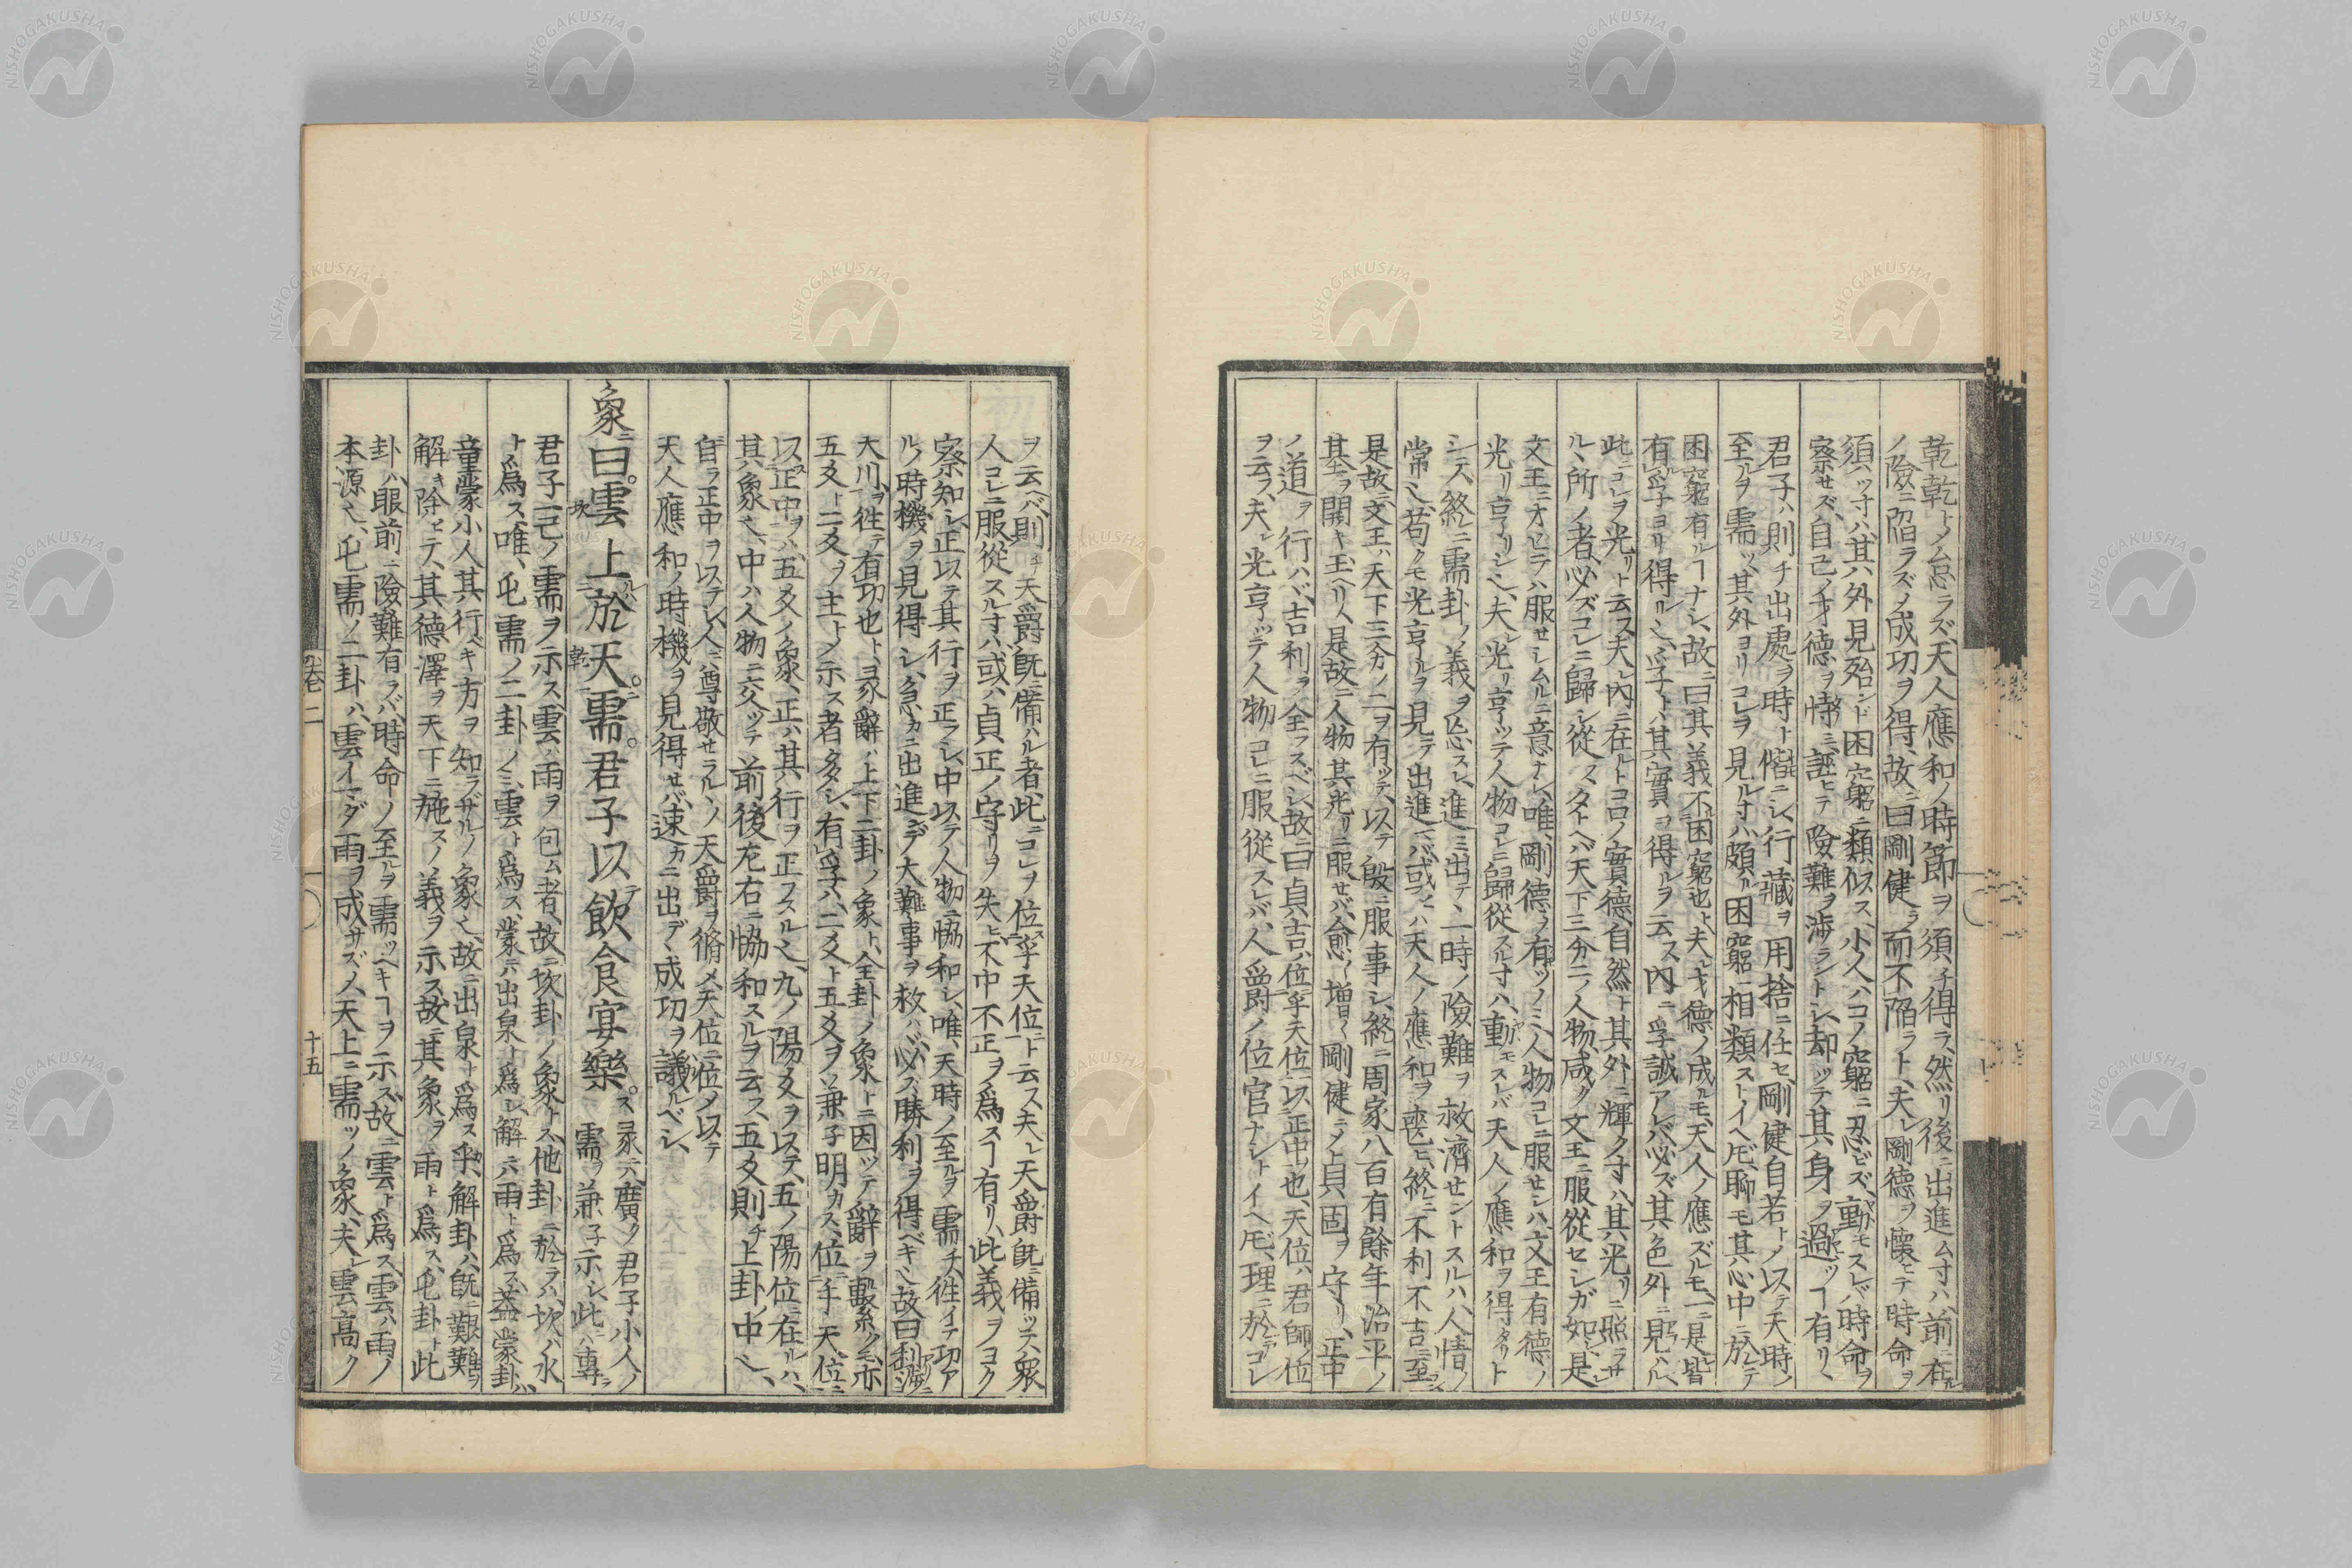 乾乾トメ怠ラズ、天人應和ノ時節ヲ須チ得ラ、然リ後ニ出進ム寸ハ、前ニ在ル
ノ險ニ陷ラズノ成功ヲ得、故ニ曰剛健ヲ而不陷ラト、夫レ剛德ヲ懷モテ時命ヲ
須ハツ寸ハ、其ハ外見殆ンド困窮ニ類似ス、小人ハコノ窮ニ忍ビズ、動モスレバ時命ヲ
察セズ、自己ノ才德ヲ恃ミ、誣ヒテ險難ヲ渉ラントシ、却ッテ其身ヲ過ツヿ有リ、
君子ハ則チ出處ヲ時ト偕ニシ、行藏ヲ用捨ニ任セ、剛健自若トメ以テ天時ノ
至ルヲ需ツ、其外ヨリコレヲ見ル寸ハ頗ル困窮ニ相類ストイヘ𪜈、聊モ其心中ニ於テ
困窮有ルヿナシ、故ニ曰其義不困窮也ト、夫レ才德ノ成ルモ、天人ノ應ズルモ、一ニ是皆
有孚ヨリ得ルシ、孚トハ其實ヲ得ルヲ云ス、内ニ孚誠アレバ必ズ其色外ニ見ハル、
此ニコレヲ光リト云ス、夫レ内ニ在ルトコロノ實德、自然ト其外ニ輝ク寸ハ、其光リニ照ラサ
ルヽ所ノ者、必ズコレニ歸シ從フ、タトヘバ天下三分二ノ人物咸ク文王ニ服從セシガ如シ、是レ
文王ニオヒテハ服セシムルニ意ナシ、唯剛德ノ有ツノミ、人物コレニ服セシハ、文王有德ノ
光リ亨リシ、夫レ光リ亨ツテ人物コレニ歸從スル寸ハ、動モスレバ天人ノ應和ヲ得タリト
シテ、終ニ需卦ノ義ヲ忘スレ、進ミ出テ一時ノ險難ヲ救濟セントスルハ、人情ノ
常シ、苟クモ光亨ルヲ見テ出進バ或ヒハ天人ノ應和ヲ喪ヒ、終ニ不利不吉ニ至
是故ニ文王ハ天下三分ノ二ヲ有ッテ、以テ殷ニ服事シ、終ニ周家八百有餘年治平ノ
基ヲ開キ玉ヘリ、是故ニ人物其光リニ服セバ、愈〱増〱剛健ニメ貞固ヲ守リ、正中
ノ道ヲ行ハバ、吉利ヲ全ラスベシ、故ニ曰貞吉、位乎天位ニ以正中也、天位ハ君師ノ位
ヲ云フ、夫レ光亨ツテ人物コレニ服從スレバ、人爵ノ位官ナシトイヘ𪜈、理ニ於テコレ
ヲ云ヘバ、則チ天爵既ニ備ハル者、此ニコレヲ位乎天位ニト云ス、夫レ天爵既ニ備ッテ、衆
人コレニ服從スル寸ハ、或ハ貞正ノ守リヲ失ヒ、不中不正ヲ爲スヿ有リ、此義ヲヨク
察知シ、正以テ其行ヲ正フシ、中以テ人物ニ協和シ、唯天時ノ至ルヲ需チ、往イテ功ア
ルノ時機ヲ見得シ、急カニ出進ンデ大難事ヲ救ハバ、必ズ勝利ヲ得ベキシ、故曰利涉
大川ヲ往テ有功也ト、彖辭ハ上下二卦ノ象ト、全卦ノ象トニ因ッテ辭ヲ繫ク𪜈、亦
五爻ト二爻ヲ主トメ示ス者多シ、有孚ハ、二爻ト五爻ヲ兼子明カス、位乎天位ニ
以正中ヲハ、五爻ノ象、正ハ其行ヲ正フスルシ、九ノ陽爻ヲ以テ、五ノ陽位ニ在ルハ、
其象シ、中ハ人物ニ交ッテ前後左右ニ協和スルヲ云フ、五爻則チ上卦ノ中シ、
自ラ正中ヲ以テシ、人ニ尊敬セラルノ天爵ヲ脩メ、天位ニ位メ以テ
天人應和ノ時機ヲ見得セバ、速カニ出デ成功ヲ議ルベシ、
象ニ曰。雲坎上ル於天乾ニ。需。君子以テ飲食宴樂ス。彖ニハ廣ク君子小人ノ
需ヲ兼子示シ、此ニハ專ラ
君子ニ己ノ需ヲ示ス、雲ハ雨ヲ包ム者、故ニ坎卦ノ象トス、他卦ニ於テハ、坎ハ水
ト爲ス、唯屯需ノ二卦ノミ、雲ト爲ス、蒙ニハ出泉ト爲シ、解ニハ雨ト爲ス、蓋蒙卦ハ
童蒙小人其行ベキ方ヲ知ラザルノ象シ、故ニ出泉ト爲ス乎、解卦ハ既ニ艱難ヲ
解キ除ヒテ、其德澤ヲ天下ニ施スノ義ヲ示ス、故ニ其象ヲ雨ト爲ス、屯卦ト此
卦ハ、眼前ニ險難有ラバ、時命ノ至ルヲ需ツベキヿヲ示ズ、故ニ雲ト爲ス、雲ハ雨ノ
本源シ、屯需ノ二卦ハ、雲イマダ雨ヲ成サズノ、天上ニ需ツノ象、夫レ雲高ク
卷二
十五